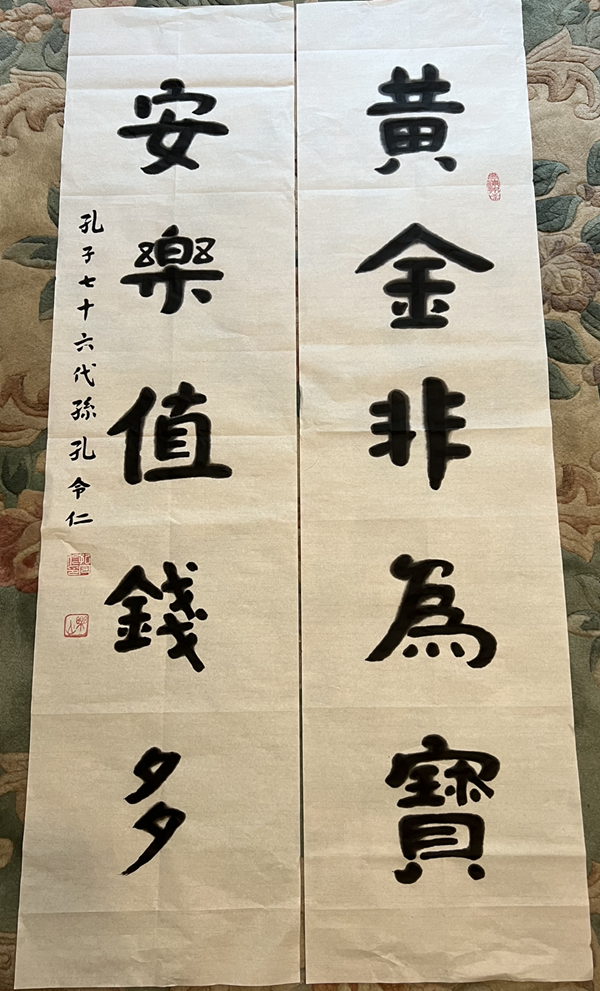 黃金非為寶
安樂值錢多
孔子七十六代孫孔令仁